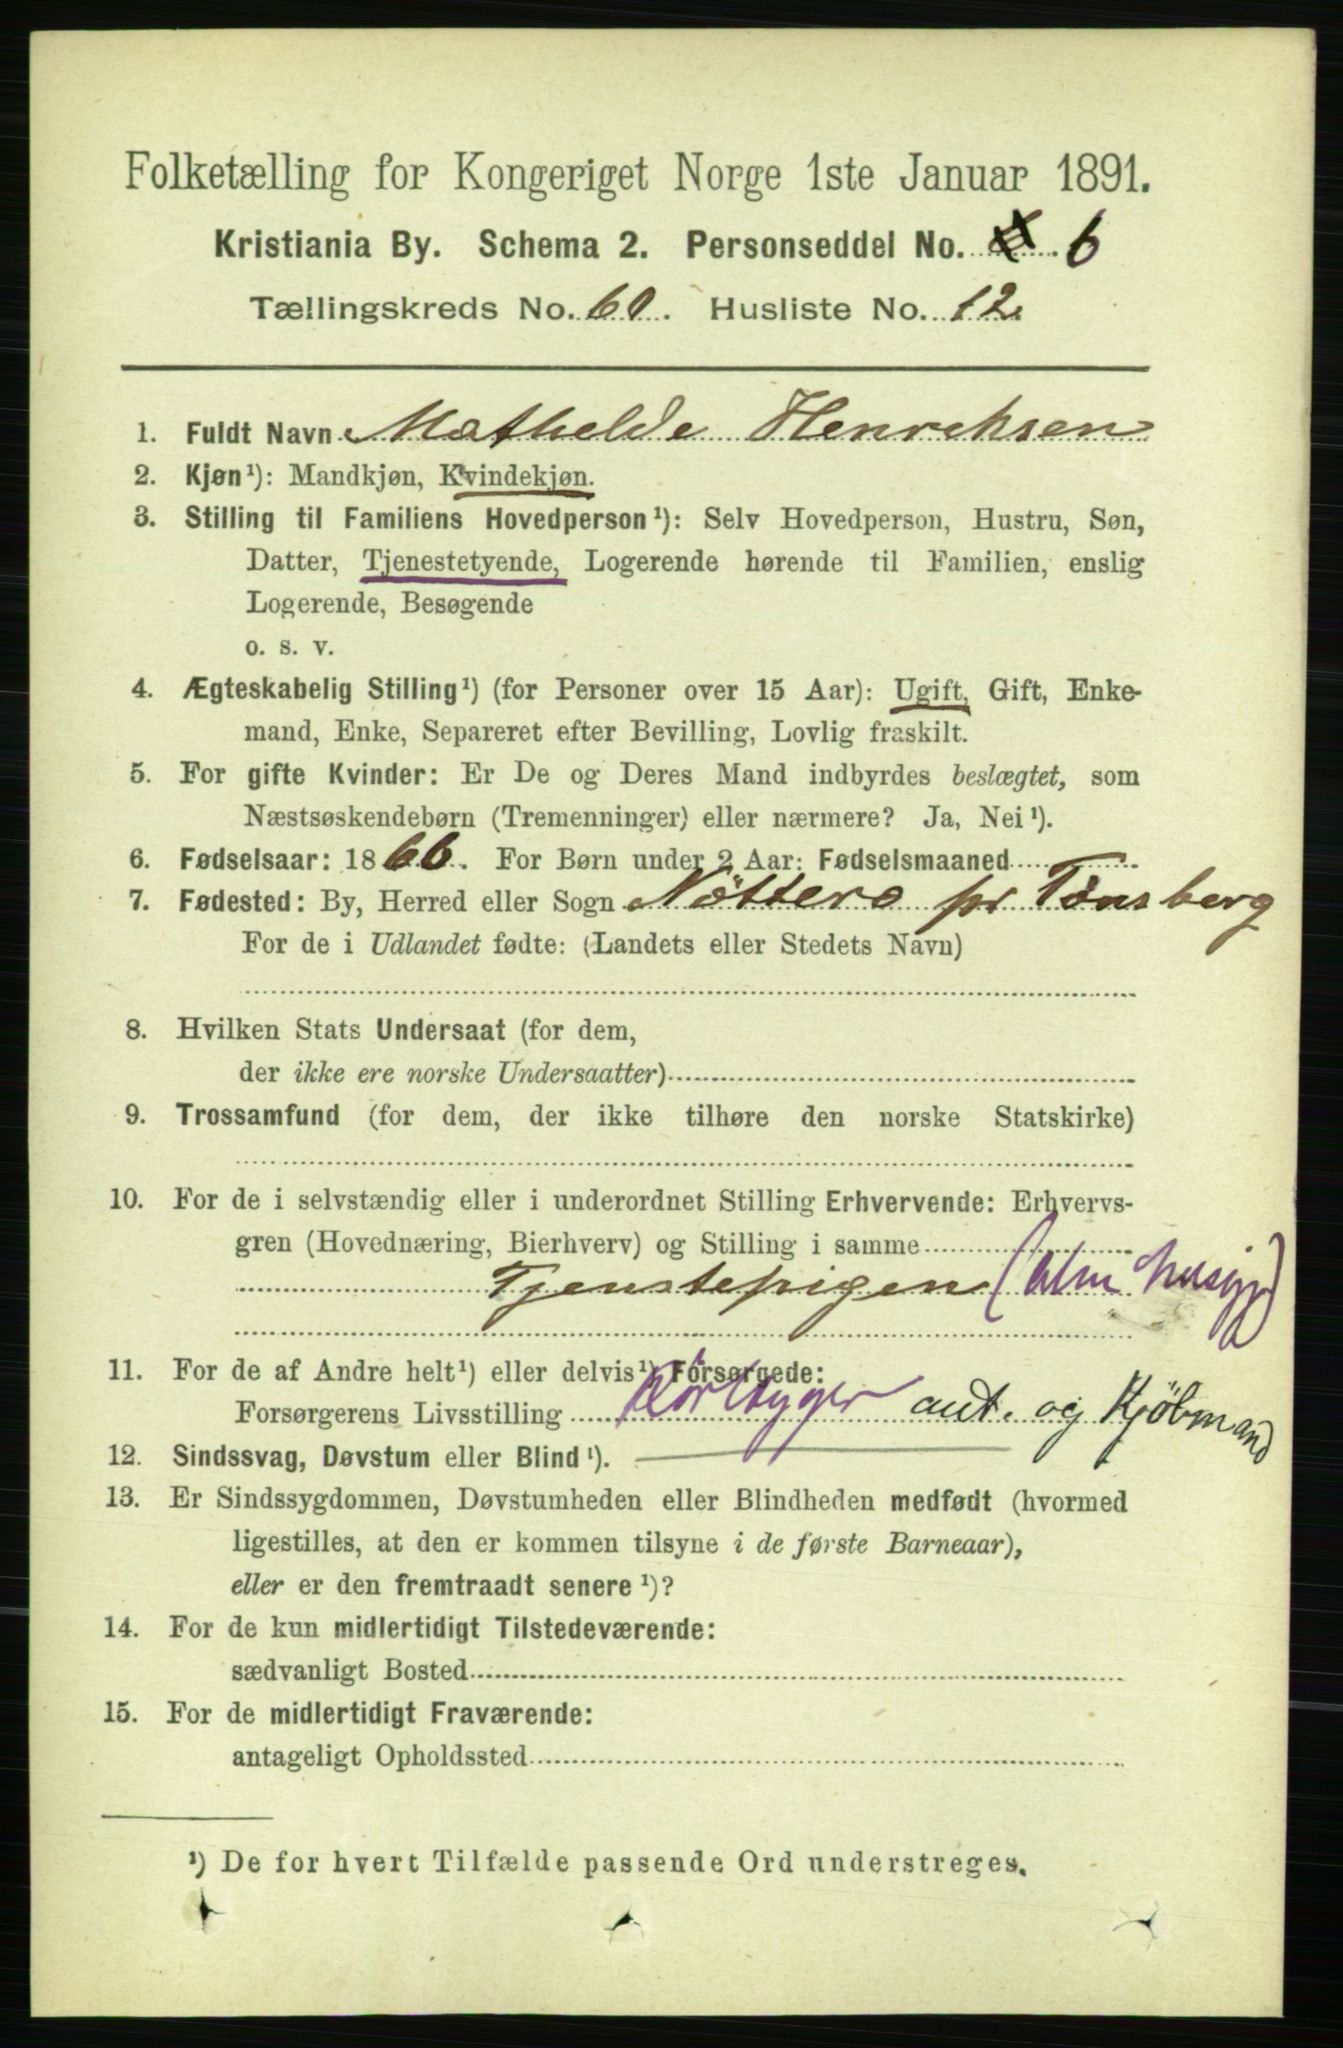 Folketælling for Kongeriget Norge 1ste Januar 1891.
Kristiania By. Schema 2. Personseddel No. 6
Tællingskreds No. 60. Husliste No. 12.
1. Fuldt Navn Mathelde Henreksen
2. Kjøn¹): Mandkjøn, Kvindekjøn.
3. Stilling til Familiens Hovedperson¹): Selv Hovedperson, Hustru, Søn,
Datter, Tjenestetyende, Logerende hørende til Familien, enslig
Logerende, Besøgende
o. s. v.
4. Ægteskabelig Stilling¹) (for Personer over 15 Aar): Ugift, Gift, Enke-
mand, Enke, Separeret efter Bevilling, Lovlig fraskilt.
5. For gifte Kvinder: Er De og Deres Mand indbyrdes beslægtet, som
Næstsøskendebørn (Tremenninger) eller nærmere? Ja, Nei¹).
6. Fødselsaar: 1866. For Børn under 2 Aar: Fødselsmaaned
7. Fødested: By, Herred eller Sogn Nöttero pr Tønsberg
For de i Udlandet fødte: (Landets eller Stedets Navn)
8. Hvilken Stats Undersaat (for dem,
der ikke ere norske Undersaatter)
9. Trossamfund (for dem, der ikke tilhøre den norske Statskirke)
10. For de i selvstændig eller i underordnet Stilling Erhvervende: Erhvervs-
gren (Hovednæring, Bierhverv) og Stilling i samme
Tjenstepigen (Alm husgj)
11. For de af Andre helt¹) eller delvis¹) Forsørgede:
Forsørgerens Livsstilling og Kjöbmand
12. Sindssvag, Døvstum eller Blind¹).
13. Er Sindssygdommen, Døvstumheden eller Blindheden medfødt (hvormed
ligestilles, at den er kommen tilsyne i de første Barneaar),
eller er den fremtraadt senere¹)?
14. For de kun midlertidigt Tilstedeværende:
sædvanligt Bosted
15. For de midlertidigt Fraværende:
antageligt Opholdssted
¹) De for hvert Tilfælde passende Ord understreges.